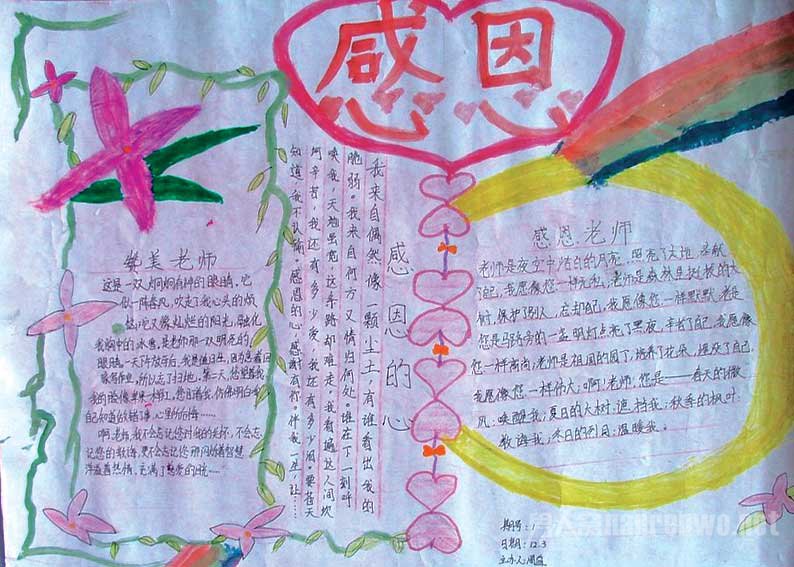 感恩
赞美老师
这是一双炯炯有神的眼睛，它
似一阵春风，吹走了我心头的烦
恼；它又像灿烂的阳光，融化
我胸中的冰雪，是老师那一双明亮的
眼睛。一天下午放学后，我是值日生，因为急着回
家写作业，所以忘了扫地。第二天，您望着我
我的脸像苹果一样红，您白着我，仿佛明白我
自己知道做错事，心里所的悔……
啊！老师，我不会忘记您对我的关怀，不会忘
记您的教诲，更不会忘记您那闪烁着智慧
洋溢着热情，充满了慈爱的目光……
感恩的心
我来自偶然像一颗尘土，有谁看出我的
脆弱。我来自何方又情归何处。谁在下一刻呼
唤我，天地虽宽，这条路却难走，我看遍这人间坎
坷辛苦，我还有多少爱，我还有多少泪。要苍天
知道，我不认输。感恩的心，感谢有你。伴我一生，让……
感恩老师
老师是夜空中洁白的月亮，照亮了大地，奉献
了自己，我愿像您一样无私；老师是森林里挺拔的大
树，保护了别人，忘却自己，我愿像您一样默默；老是
您是马路旁的一盏明灯点亮了黑夜，牵挂了自己，我愿像
您一样高尚；老师是祖国的园丁，培养了花朵，湿灰了自己，
我愿像您一样伟大；啊！老师，您是——春天的微
风，唤醒我；夏日的大树，遮挡我；秋季的枫叶，
教诲我；冬日的烈日，温暖我。
期号：1
日期：12.3
主办人：周益
nanrenwo.net